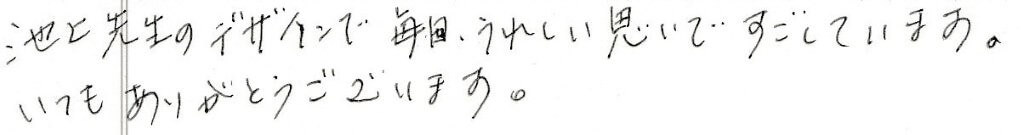 池上先生のデザインで毎日、うれしい思いですごしています。
いつもありがとうございます。